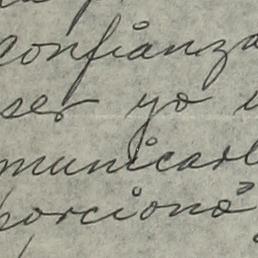 confianza
ser yo
municarl
porcionó